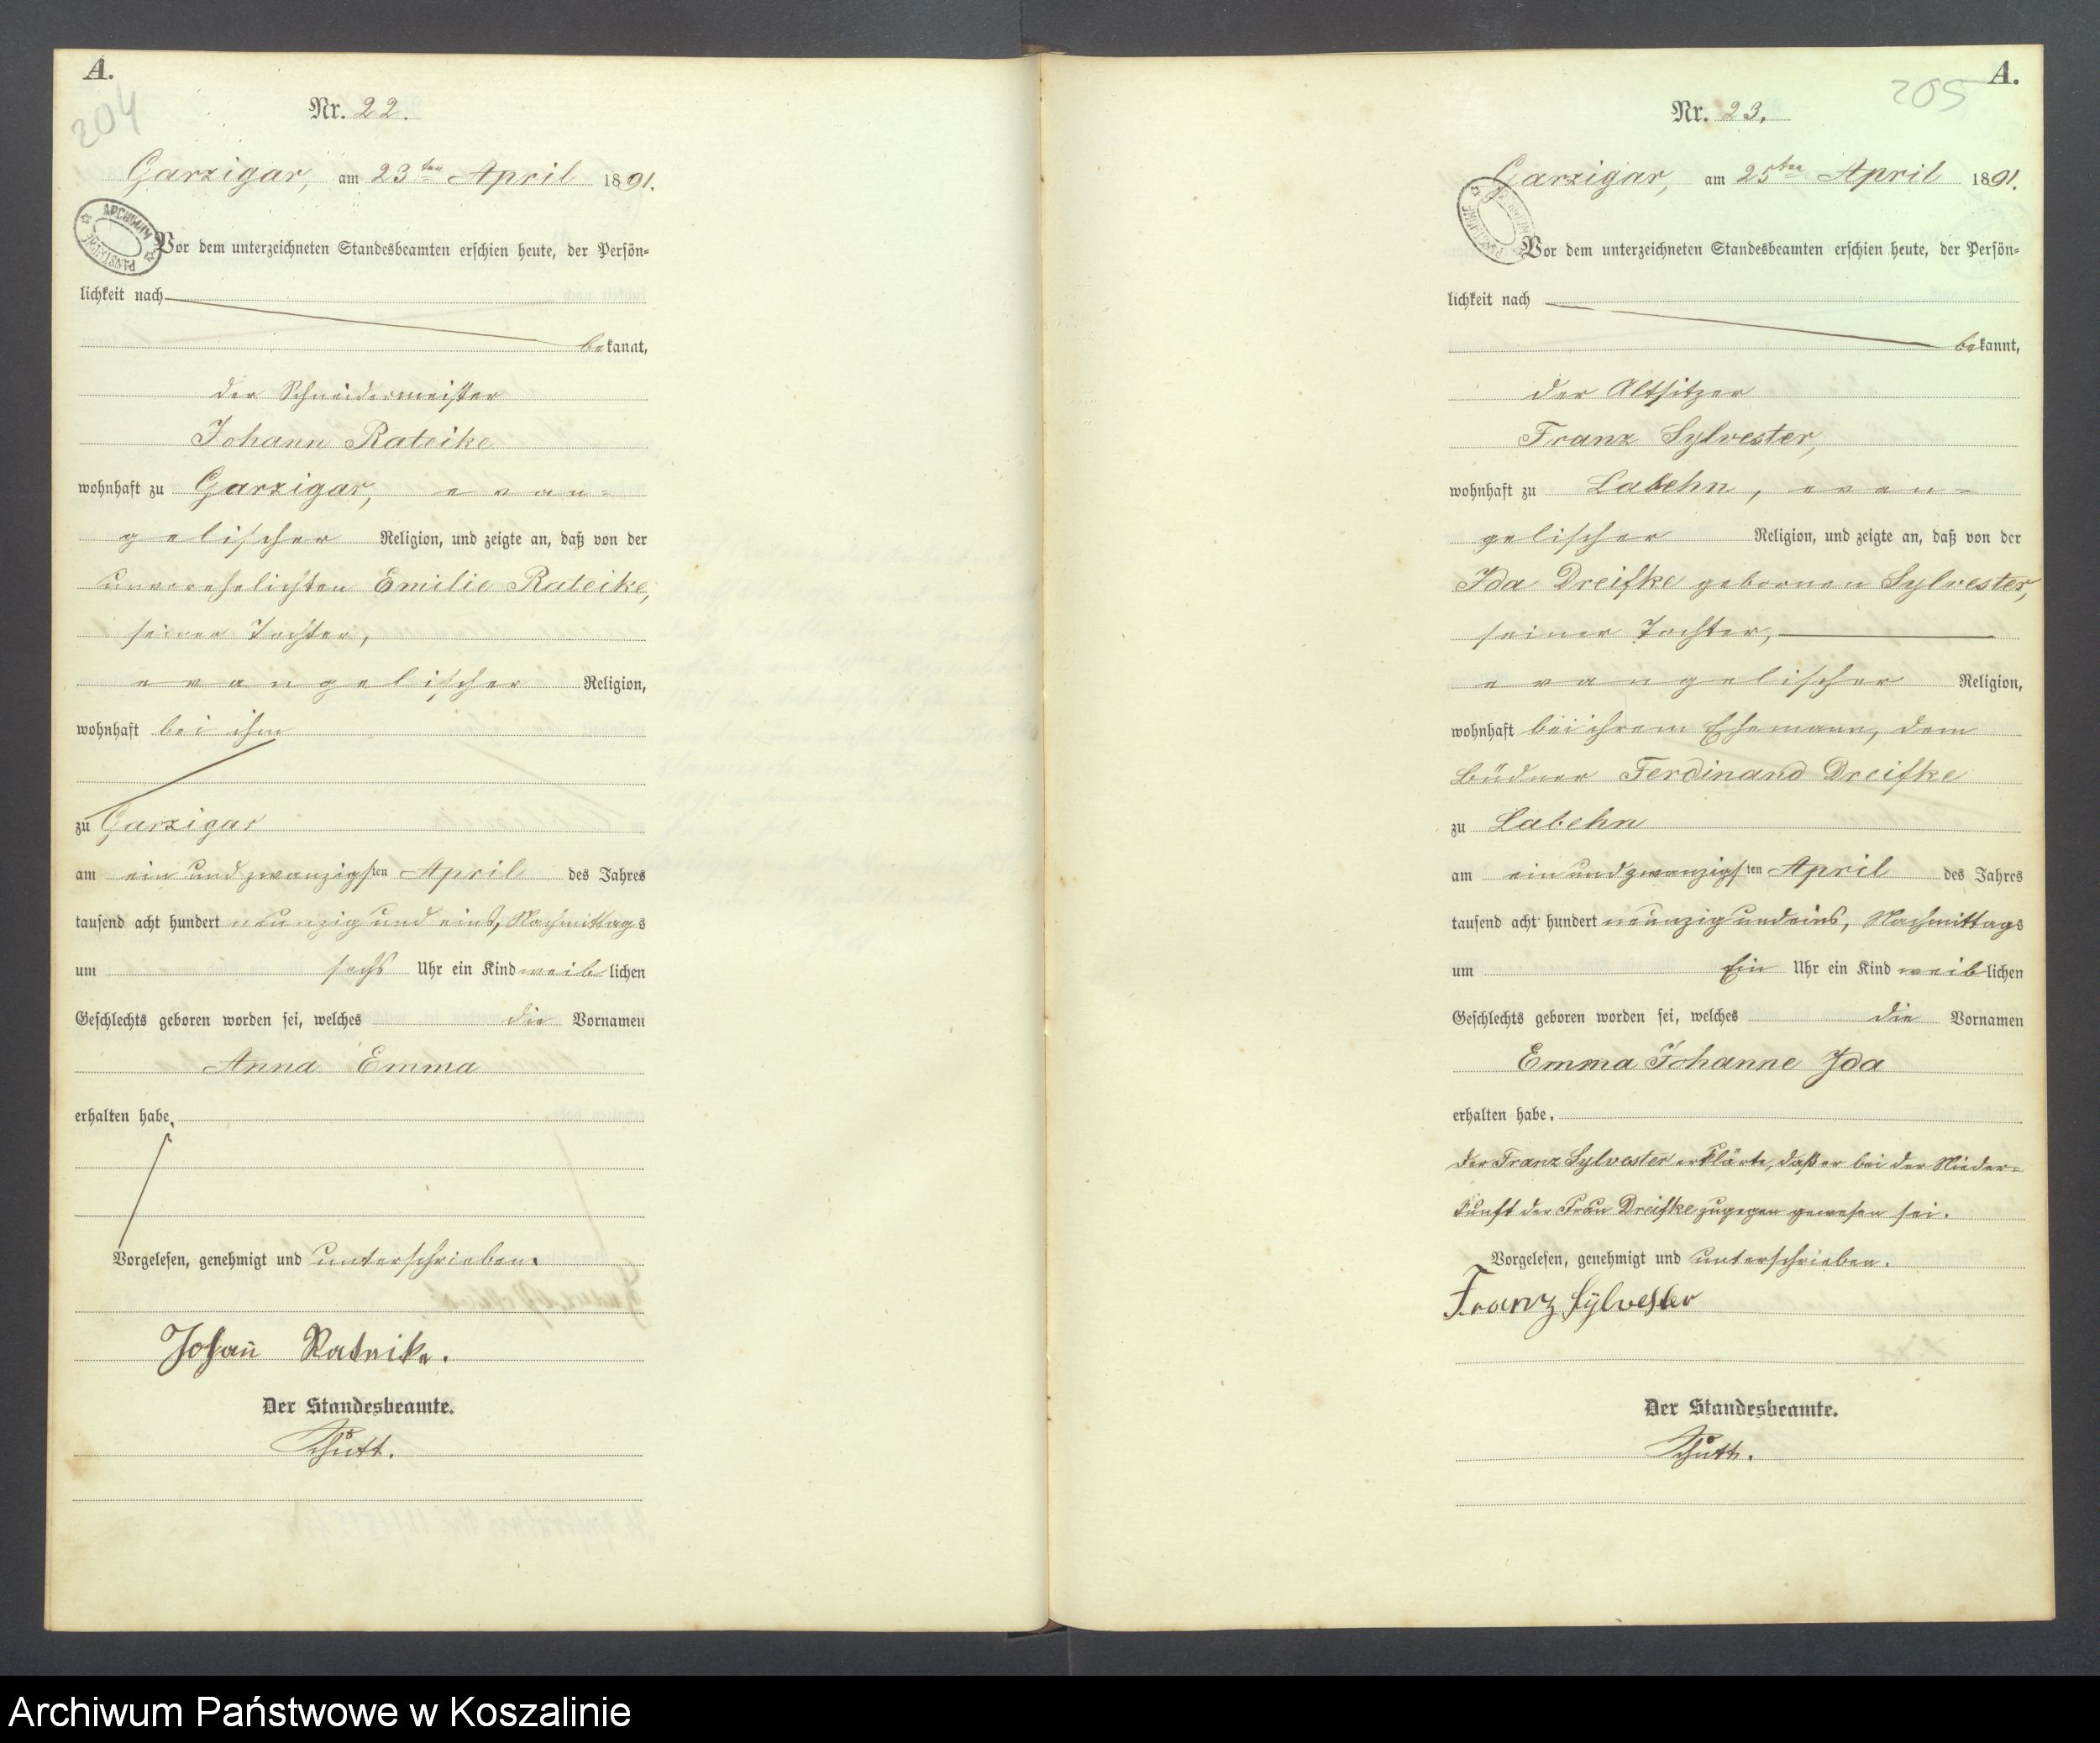 A.
204
Nr. 22.
Garzigar, am 23ten April 1891.
ARCHIWUM PAŃSTWOWE
Vor dem unterzeichneten Standesbeamten erschien heute, der Persön-
lichkeit nach
bekannt,
der Schneidermeister
Johann Rateike
wohnhaft zu Garzigar, evan-
gelischer Religion, und zeigte an, daß von der
unverehelichten Emilie Rateike,
seiner Tochter,
evangelischer Religion,
wohnhaft bei ihm
zu Garzigar
am ein und zwanzigsten April des Jahres
tausend acht hundert neunzig und eins, Nachmittags
um sechs Uhr ein Kind weiblichen
Geschlechts geboren worden sei, welches die Vornamen
Anna Emma
erhalten habe.
Vorgelesen, genehmigt und unterschrieben.
Johann Rateike.
Der Standesbeamte.
Schütt.
A.
205
Nr. 23.
Garzigar, am 25ten April 1891.
Vor dem unterzeichneten Standesbeamten erschien heute, der Persön-
lichkeit nach
bekannt,
der Altsitzer
Franz Sylvester,
wohnhaft zu Labehn, evan-
gelischer Religion, und zeigte an, daß von der
Ida Dreifke gebornen Sylvester,
seiner Tochter,
evangelischer Religion,
wohnhaft bei ihrem Ehemann, dem
Büdner Ferdinand Dreifke
zu Labehn
am ein und zwanzigsten April des Jahres
tausend acht hundert neunzig und eins, Nachmittags
um Ein Uhr ein Kind weiblichen
Geschlechts geboren worden sei, welches die Vornamen
Emma Johanne Ida
erhalten habe.
Der Franz Sylvester erklärte, daß er bei der Nieder-
kunft der Frau Dreifke zugegen gewesen sei.
Vorgelesen, genehmigt und unterschrieben.
Franz Sylvester
Der Standesbeamte.
Schütt.
Archiwum Państwowe w Koszalinie